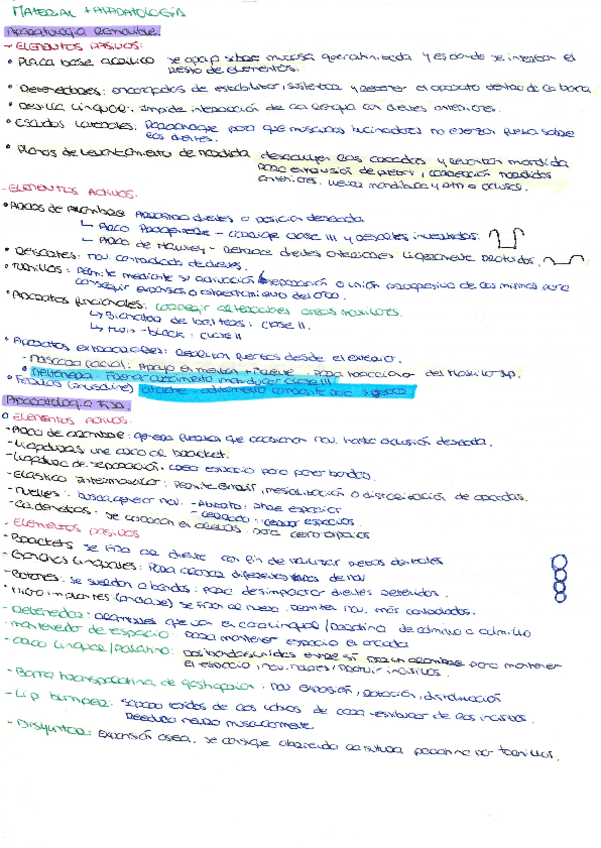 MATERIAL + APARATOLOGÍA
Aparatología removible.
- ELEMENTOS PASIVOS:
• Placa base acrílico se apoya sobre mucosa queratinizada y es donde se insertan el
resto de elementos.
• Retenedores: encargados de estabilizar, sujetar y retener el aparato dentro de la boca
• Rejilla lingual: impide interposición de la lengua con dientes anteriores.
• Escudos laterales: para que músculos bucinadores no ejerzan fuerza sobre
los dientes.
• Planos de levantamiento de mordida
- ELEMENTOS ACTIVOS.
• Arcos de alambre dientes a posición deseada
↳ Arco Progenie - corrige clase III y resaltes invertidos.
↳ Arco de Hawley - Retrae dientes anteriores ligeramente protruidos.
• Resortes: mov. controlados de dientes.
• Tornillos: Permite mediante su activación separación o unión progresiva de las mismas para
conseguir expansión o estrechamiento del arco.
• Aparatos funcionales: corregir alteraciones óseas maxilares.
↳ Bionator de balters: clase II.
↳ twin-block: clase II
• Aparatos extraorales: fuerzas desde el exterior.
- Mascara facial: Apoyo en menton y frente. para traccionar del Maxilar sup.
Aparatología fija.
○ ELEMENTOS ACTIVOS.
- Arco de alambre: genera fuerza que ocasionan mov. hasta oclusión deseada.
- Ligaduras une arco al bracket.
- Ligadura de separación. crea espacio para poner bandas.
- Elástico intermaxilar: Permite extruir, mesialización o distalización de arcadas.
- Muelles: busca generar mov. - Abierto: abre espacios
- cerrado: cerrar espacios.
- Cadenetas: se colocan en para cerrar espacios
- ELEMENTOS PASIVOS
- Brackets se fija al diente con fin de realizar mov. dentales
- Ganchos linguales: Para
- Botones: se sueldan a bandas: para desimpactar dientes retenidos.
- Micro implantes (anclaje) se fijan al hueso. Permiten mov. más controlados.
- Retenedor: alambres que van en cara lingual/palatina de canino a canino
- mantenedor de espacio: para mantener espacio en arcada
- arco lingual/palatino: dos bandas unidas entre sí por un alambre para mantener
el espacio, mov. molares/ incisivos.
- Barra transpalatina de goshgarian: mov expansión, rotación, distalización
- Lip bumper: separa tejidos de los labios de cara vestibular de los incisivos.
Reeduca neuro muscularmente
- Disyuntor: Expansión ósea, se consigue abriendo la sutura palatina por tornillos.